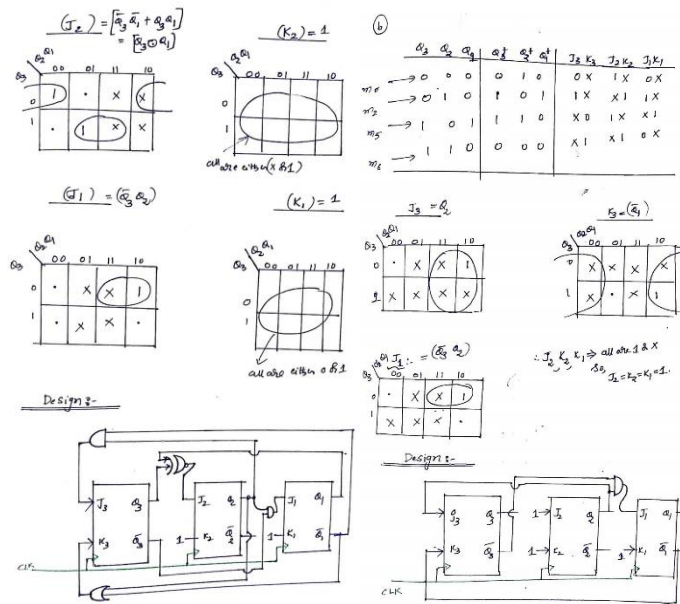 (J₂) = [Q̄₃ Q̄₁ + Q₃ Q₁]
= [Q₃ ⊙ Q₁]
Q₂Q₁
Q₃ 00 01 11 10
0 1 · x x
1 · 1 x x
(K₂) = 1
Q₂Q₁
Q₃ 00 01 11 10
0
1
all are either (x & 1)
(J₁) = (Q̄₃ Q₂)
Q₂Q₁
Q₃ 00 01 11 10
0 · x x 1
1 · x x ·
(K₁) = 1
Q₂Q₁
Q₃ 00 01 11 10
0
1
all are either 0 & 1
Design :-
J₃ Q₃
K₃ Q̄₃
J₂ Q₂
1 K₂ Q̄₂
J₁ Q₁
1 K₁ Q̄₁
CLK
(b)
Q₃ Q₂ Q₁ Q₃⁺ Q₂⁺ Q₁⁺ J₃ K₃ J₂ K₂ J₁ K₁
m₀ → 0 0 0 0 1 0 0x 1x 0x
m₂ → 0 1 0 1 0 1 1x x1 1x
m₅ → 1 0 1 1 1 0 x0 1x x1
m₆ → 1 1 0 0 0 0 x1 x1 0x
J₃ = Q₂
Q₂Q₁
Q₃ 00 01 11 10
0 · x x 1
x x x x
K₃ = (Q̄₁)
Q₂Q₁
Q₃ 00 01 11 10
0 x x x x
1 x · x 1
J₁ :- = (Q̄₃ Q₂)
Q₃ 00 01 11 10
0 · x x 1
1 x x x ·
∴ J₂, K₂, K₁ ⇒ all are 1 & x
So,
J₂ = K₂ = K₁ = 1.
Design :-
J₃ Q₃
K₃ Q̄₃
1 J₂ Q₂
1 K₂ Q̄₂
J₁ Q₁
1 K₁ Q̄₁
CLK